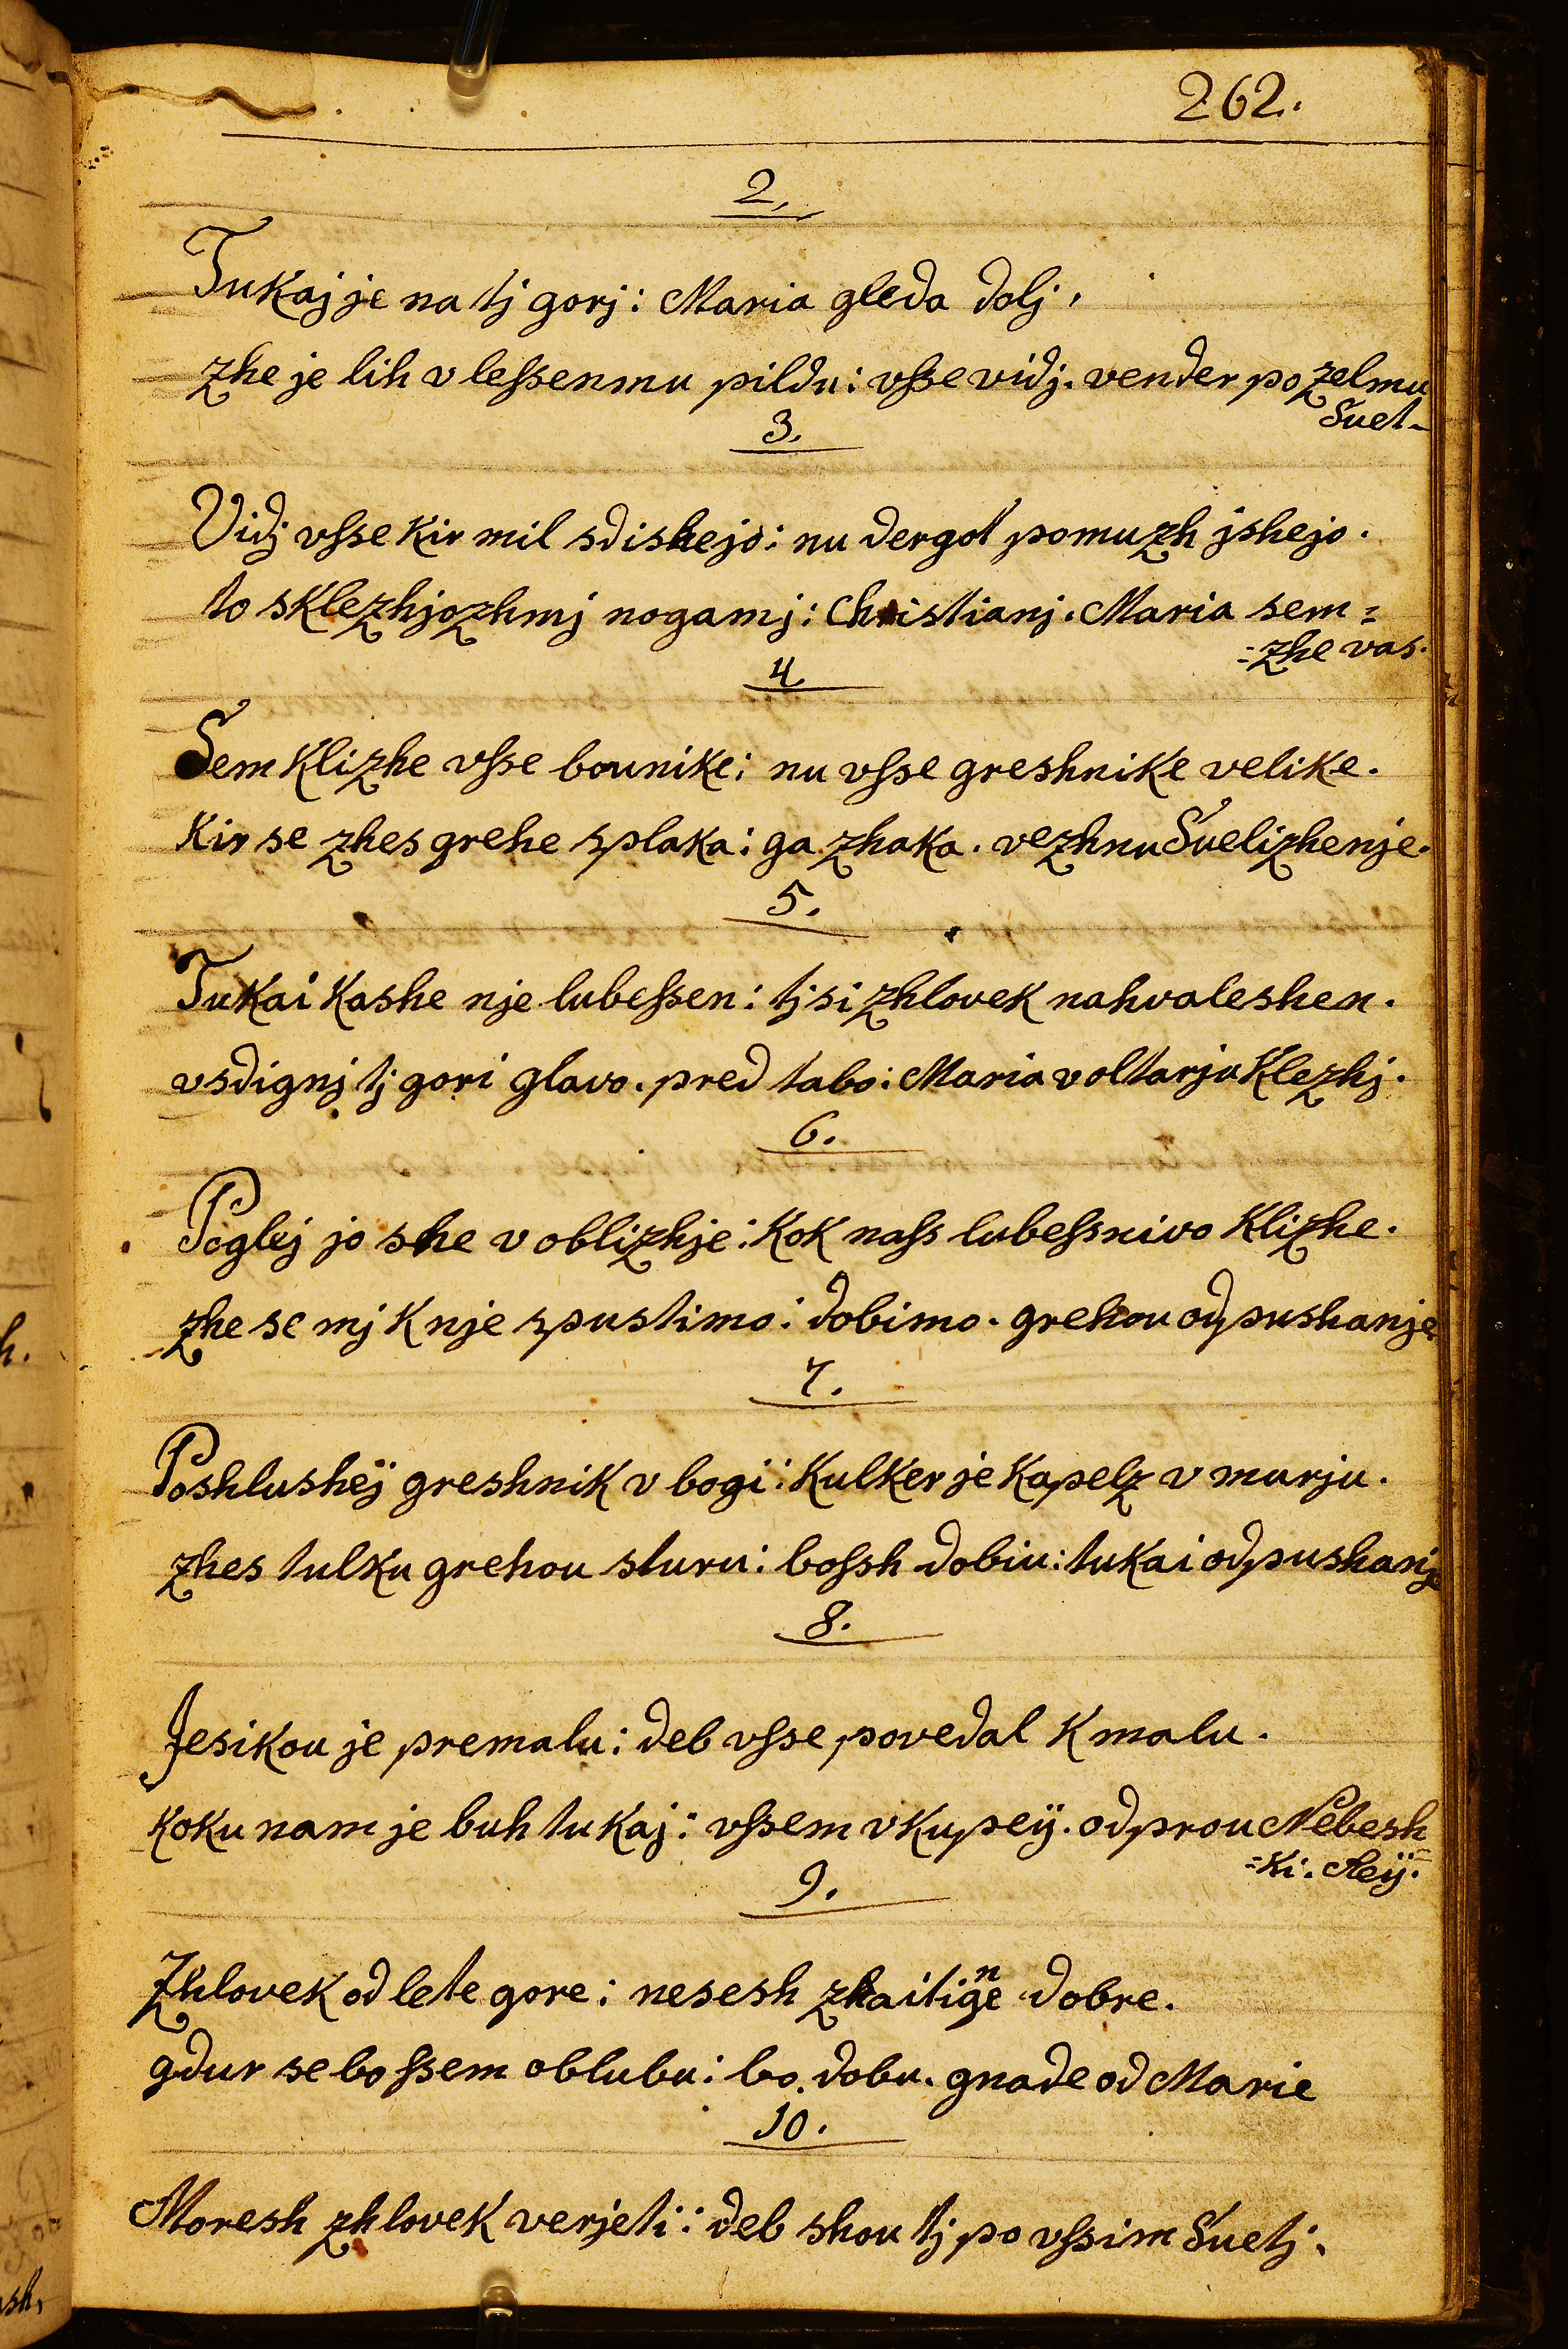 262.
2.
Tukaj je na tj gorj: Maria gleda dolj,
zhe je lih v leſsenmu pildu: vſse vidj. vender po zelmu
Suet-
3.
Vidj vſse kir mil sdishejo: nu dergot pomuzh jshejo.
to sklezhjozhmj nogamj: Christianj. Maria sem=
=zhe vas.
4
Sem klizhe vſse bounike: nu vſse greshnike velike.
kir se zhes grehe splaka: ga zhaka. vezhnu Suelizhenje.
5.
Tukai kashe nje lubeſsen: tj si zhlovek nahvaleshen.
vsdignj tj gori glavo. pred tabo: Maria v oltarju klezhj.
6.
Poglej jo she v oblizhje: kok naſs lubeſsnivo klizhe.
zhe se mj k nje spustimo: dobimo. grehou odpushanje
7.
Poshlushej greshnik v bogi: kulker je kapelz v murju.
zhes tulku grehou sturu: boſsh dobiu: tukai odpushanje
8.
Jesikou je premalu: deb vſse povedal k malu.
koku nam je buh tukaj: vſsem vkupeÿ. odprou Nebesh
=ki. Reÿ.
9.
Zhlovek od lete gore: nesesh zhaitige dobre.
n
gdur se bo ſsem oblubu: bo dobu. gnade od Marie
10.
Moresh zhlovek verjeti: deb shou tj po vſsim Suetj.
h.
ush,